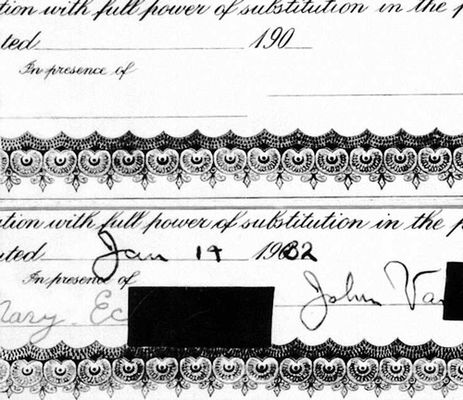 tion with full power of substitution in the p
ted 190
In presence of
ution with full power of substitution in the p
uted Jan 19 1932
In presence of
John Va
Mary Ec